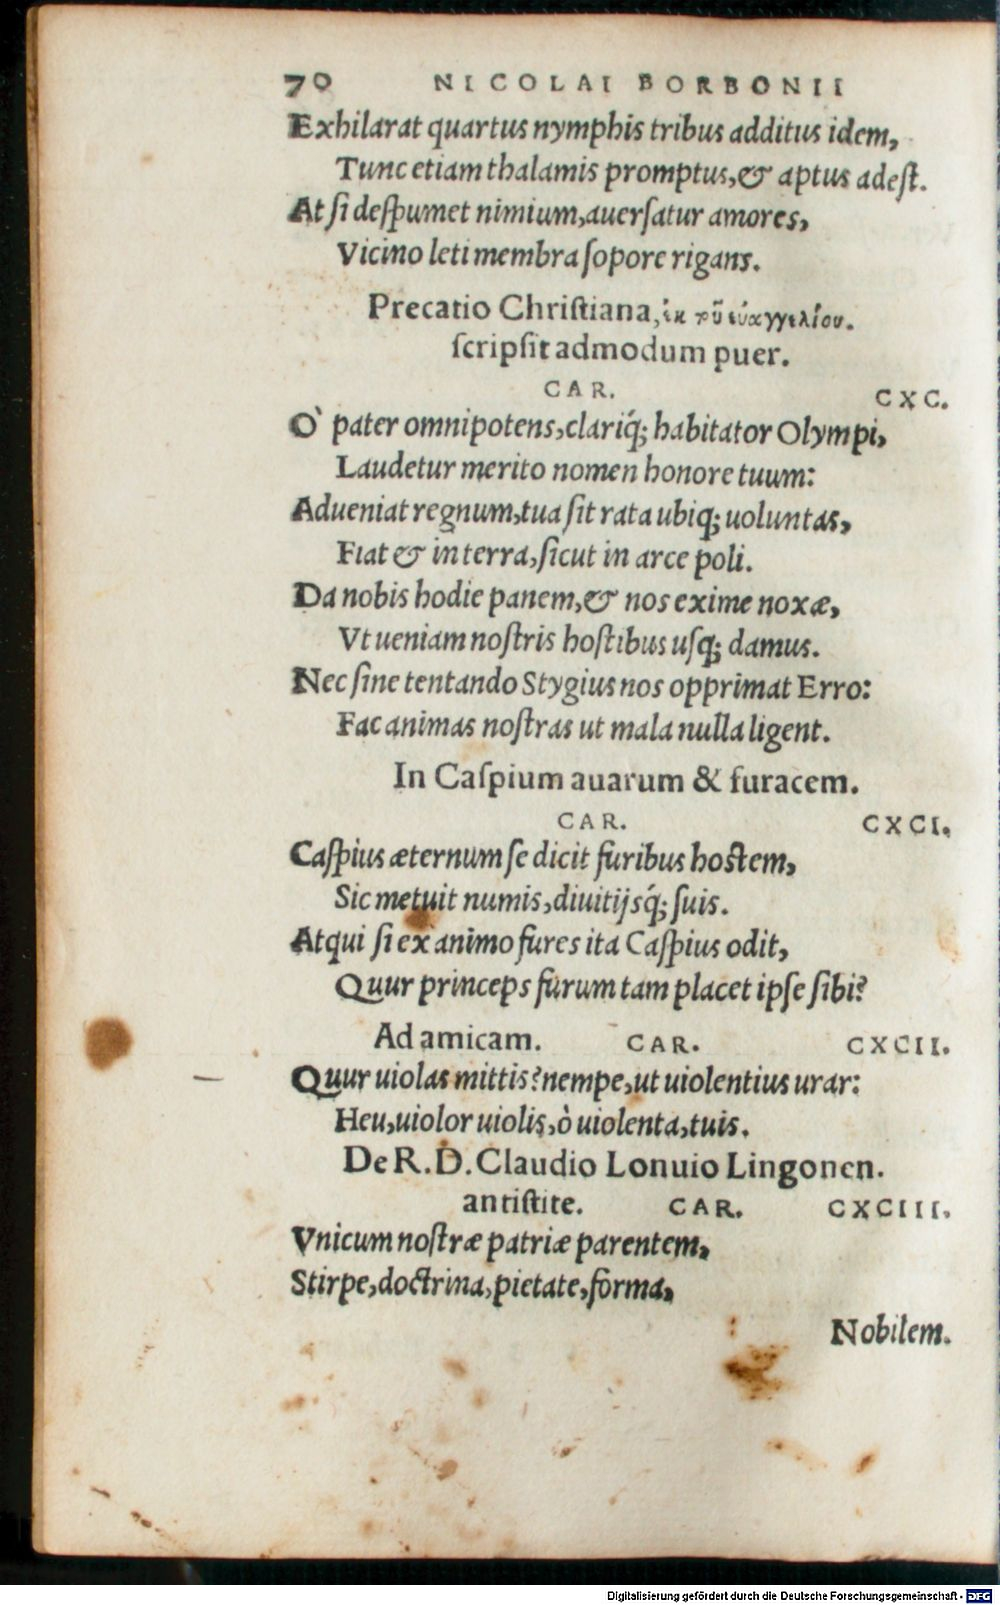 70 NICOLAI BORBONII
Exhilarat quartus nymphis tribus additus idem,
Tunc etiam thalamis promptus, & aptus adeſt.
At ſi deſpumet nimium, auerſatur amores,
Vicino leti membra ſopore rigans.
Precatio Chriſtiana, ἐκ τοῦ εὐαγγελίου.
ſcripſit admodum puer.
CAR. CXC.
Ò pater omnipotens, clariq́; habitator Olympi,
Laudetur merito nomen honore tuum:
Adueniat regnum, tua ſit rata ubiq; uoluntas,
Fiat & in terra, ſicut in arce poli.
Da nobis hodie panem, & nos exime noxæ,
Vt ueniam noſtris hoſtibus uſq; damus.
Nec ſine tentando Stygius nos opprimat Erro:
Fac animas noſtras ut mala nulla ligent.
In Caſpium auarum & furacem.
CAR. CXCI.
Caſpius æternum ſe dicit furibus hoſtem,
Sic metuit numis, diuitijsq́; ſuis.
Atqui ſi ex animo fures ita Caſpius odit,
Quur princeps furum tam placet ipſe ſibi?
Ad amicam. CAR. CXCII.
Quur uiolas mittis? nempe, ut uiolentius urar:
Heu, uiolor uiolis, ò uiolenta, tuis.
De R. D. Claudio Lonuio Lingonen.
antiſtite. CAR. CXCIII.
Vnicum noſtræ patriæ parentem,
Stirpe, doctrina, pietate, forma,
Nobilem.
Digitalisierung gefördert durch die Deutsche Forschungsgemeinschaft - DFG